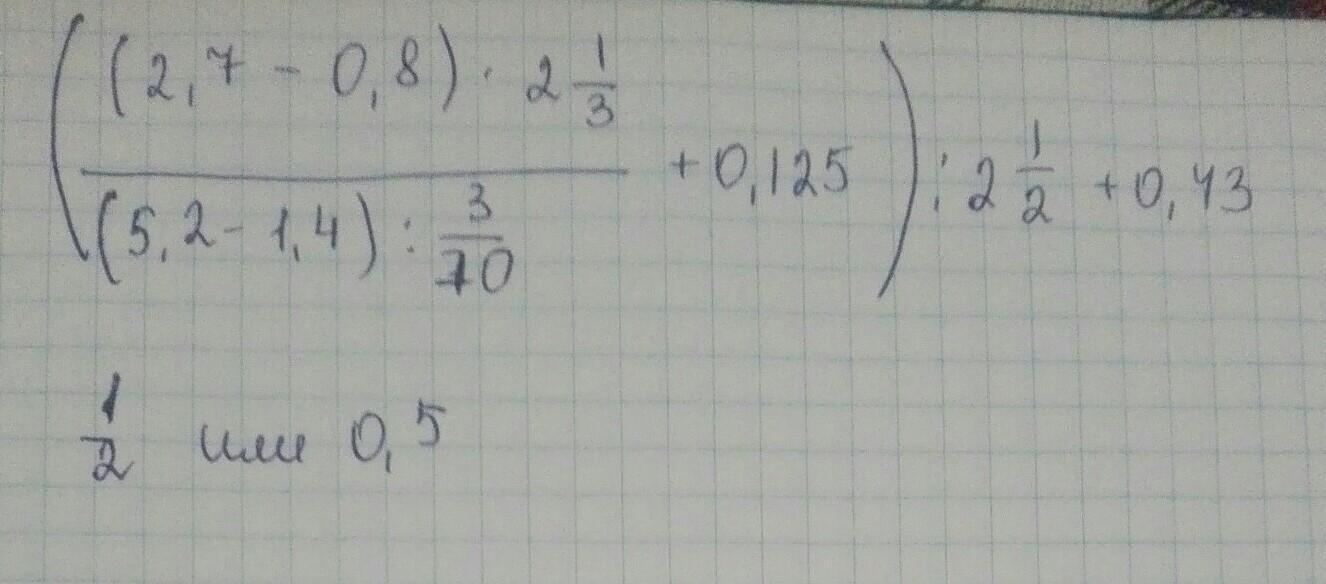 ((2,7 - 0,8) · 2 1/3 / (5,2 - 1,4) : 3/70 + 0,125) : 2 1/2 + 0,43
1/2 или 0,5